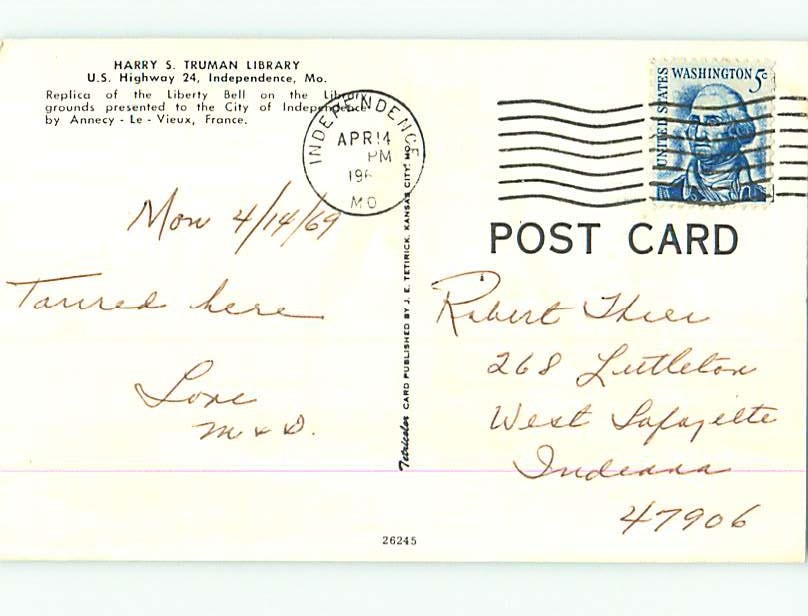 HARRY S. TRUMAN LIBRARY
U.S. Highway 24, Independence, Mo.
Replica of the Liberty Bell on the Library
grounds presented to the City of Independence
by Annecy - Le - Vieux, France.
INDEPENDENCE
APR 14
PM
196
MO
UNITED STATES
WASHINGTON 5c
POST CARD
Mon 4/14/69
Toured here
Love
M & D.
Tetricolor CARD PUBLISHED BY J. E. TETIRICK, KANSAS CITY, MO.
Robert
268 Littleton
West Lafayette
Indiana
47906
26245